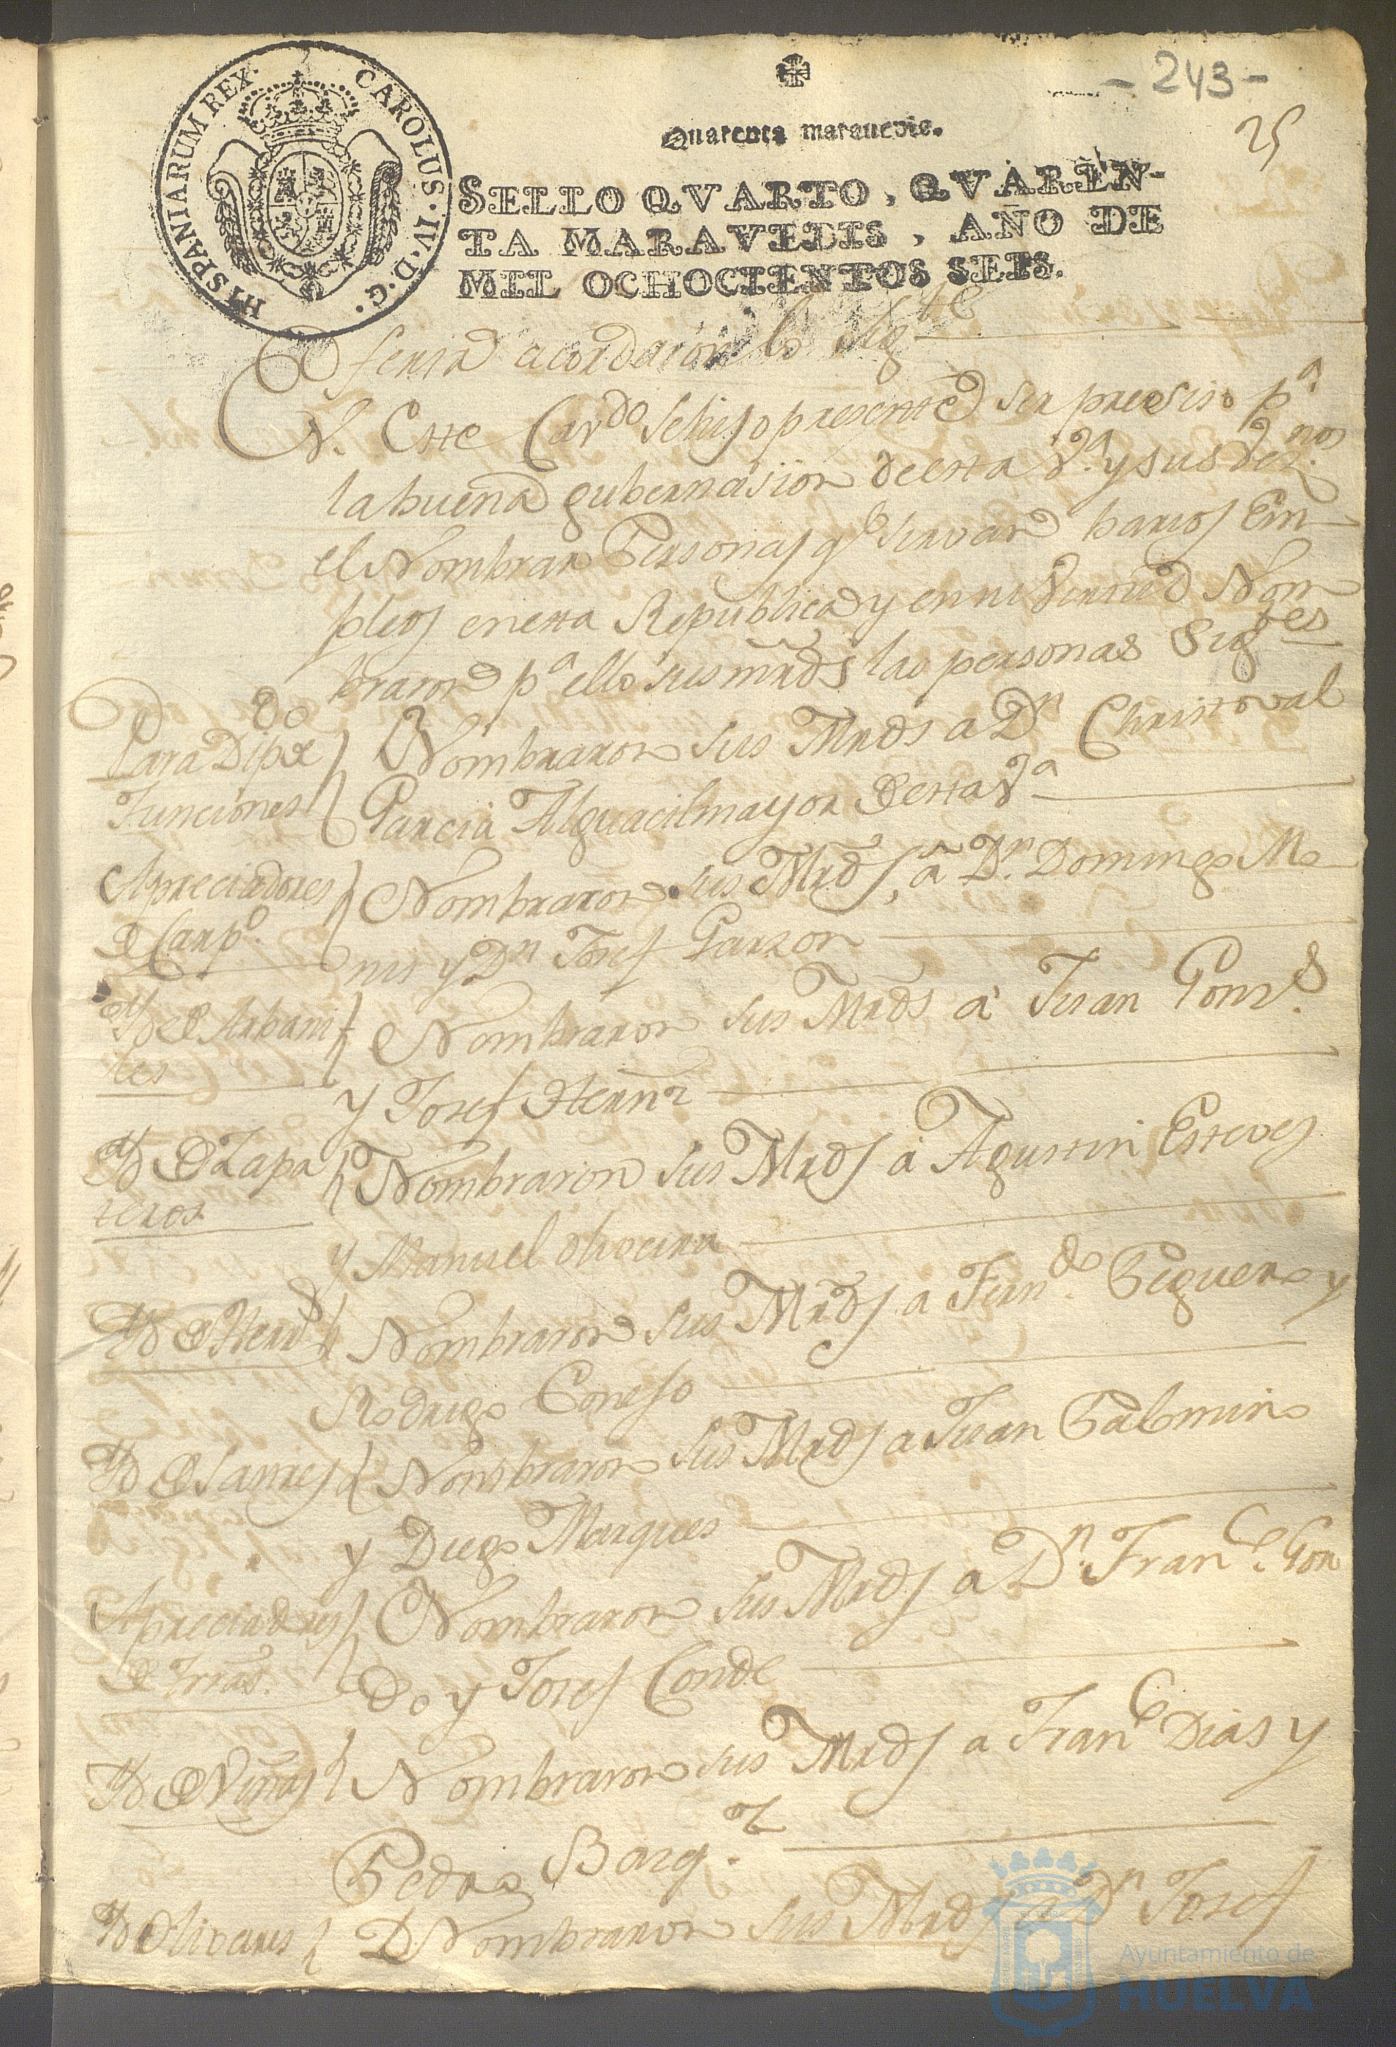 - 243 -
25
HISPANIARUM REX. CAROLUS. IV. D. G.
Quarenta maravedis.
SELLO QVARTO, QVAREN-
TA MARAVEDIS, AÑO DE
MIL OCHOCIENTOS SEIS.
acordaron lo sigte
En Este Cavdo se hiso presente ser presiso pa
la buena gubernasion de esta Va. y sus veznos
el Nombrar Personas qe sirvan barios Em-
pleos en esta Republica y en su virtud Nom
braron pa ello sus mrds las personas Sigtes
Para Dipdo de Nombraron sus Mrds a Dn Christoval
Funciones Garcia Alguacil mayor de esta Va
Apreciadores Nombraron sus Mrds, a Dn. Domingo M
de Carpo. nis y Dn Josef Garzon
Yd de Arbañi Nombraron sus Mrds a Juan Gonzs.
les y Josef Hernz
Yd de Zapa Nombraron sus Mrds a Agustin Esteves
teros y Manuel oliveira
Yd de Herrs Nombraron sus Mrds a Ferndo. Figuero y
Rodrigo Conejo
Yd de Sastres Nombraron sus Mrds a Juan Palomino
y Diego Marques
Apreciadores Nombraron sus Mrds a Dn. Franco. Gon
de Trras. do y Josef Conde
Yd de Viñas Nombraron sus Mrds a Franco Dias y
Pedro Barq.z
Yd Olivares Nombraron sus Mrds a Dn Josef
Ayuntamiento de
HUELVA